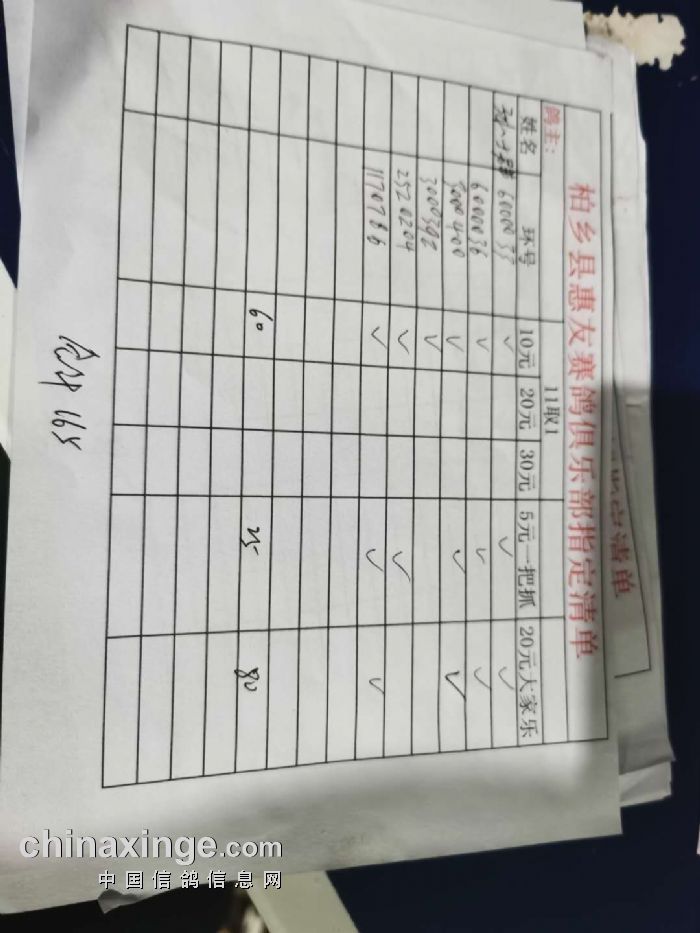 柏乡县惠友赛鸽俱乐部指定清单
鸽主:
11取1
姓名 环号 10元 20元 30元 5元一把抓 20元大家乐
6000033 ✓ ✓ ✓
6000036 ✓ ✓ ✓
5000400 ✓ ✓ ✓
3000392 ✓
2520204 ✓ ✓
1170786 ✓ ✓ ✓
60 25 80
165
清单
chinaxinge.com
中国信鸽信息网